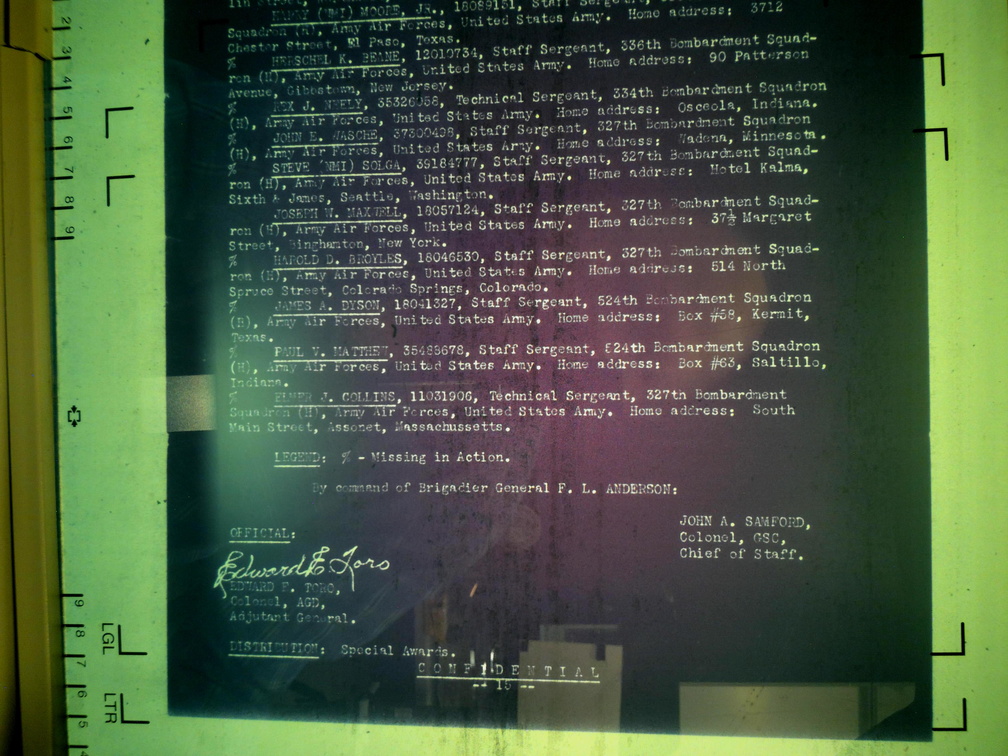 HARRY (NMI) MOORE, JR., 18089151, Staff Sergeant,
Squadron (H), Army Air Forces, United States Army. Home address: 3712
Chester Street, El Paso, Texas.
% HERSCHEL K. BEANE, 12019734, Staff Sergeant, 336th Bombardment Squad-
ron (H), Army Air Forces, United States Army. Home address: 90 Patterson
Avenue, Gibbstown, New Jersey.
% REX J. NEELY, 35326058, Technical Sergeant, 334th Bombardment Squadron
(H), Army Air Forces, United States Army. Home address: Osceola, Indiana.
% JOHN E. WASCHE, 37300498, Staff Sergeant, 327th Bombardment Squadron
(H), Army Air Forces, United States Army. Home address: Wadena, Minnesota.
% STEVE (NMI) SOLGA, 39184777, Staff Sergeant, 327th Bombardment Squad-
ron (H), Army Air Forces, United States Army. Home address: Hotel Kalma,
Sixth & James, Seattle, Washington.
JOSEPH W. MAXWELL, 18057124, Staff Sergeant, 327th Bombardment Squad-
ron (H), Army Air Forces, United States Army. Home address: 37½ Margaret
Street, Binghamton, New York.
% HAROLD D. BROYLES, 18046530, Staff Sergeant, 327th Bombardment Squad-
ron (H), Army Air Forces, United States Army. Home address: 514 North
Spruce Street, Colorado Springs, Colorado.
% JAMES A. DYSON, 18041327, Staff Sergeant, 524th Bombardment Squadron
(H), Army Air Forces, United States Army. Home address: Box #58, Kermit,
Texas.
% PAUL V. MATTHEW, 35488678, Staff Sergeant, 524th Bombardment Squadron
(H), Army Air Forces, United States Army. Home address: Box #63, Saltillo,
Indiana.
% ELMER J. COLLINS, 11031906, Technical Sergeant, 327th Bombardment
Squadron (H), Army Air Forces, United States Army. Home address: South
Main Street, Assonet, Massachussetts.
LEGEND: % - Missing in Action.
By command of Brigadier General F. L. ANDERSON:
JOHN A. SAMFORD,
Colonel, GSC,
Chief of Staff.
OFFICIAL:
Edward E. Toro
EDWARD E. TORO,
Colonel, AGD,
Adjutant General.
DISTRIBUTION: Special Awards.
CONFIDENTIAL
-- 15 --
2
3
4
5
6
7
8
9
9
8
7
6
5
LGL
LTR